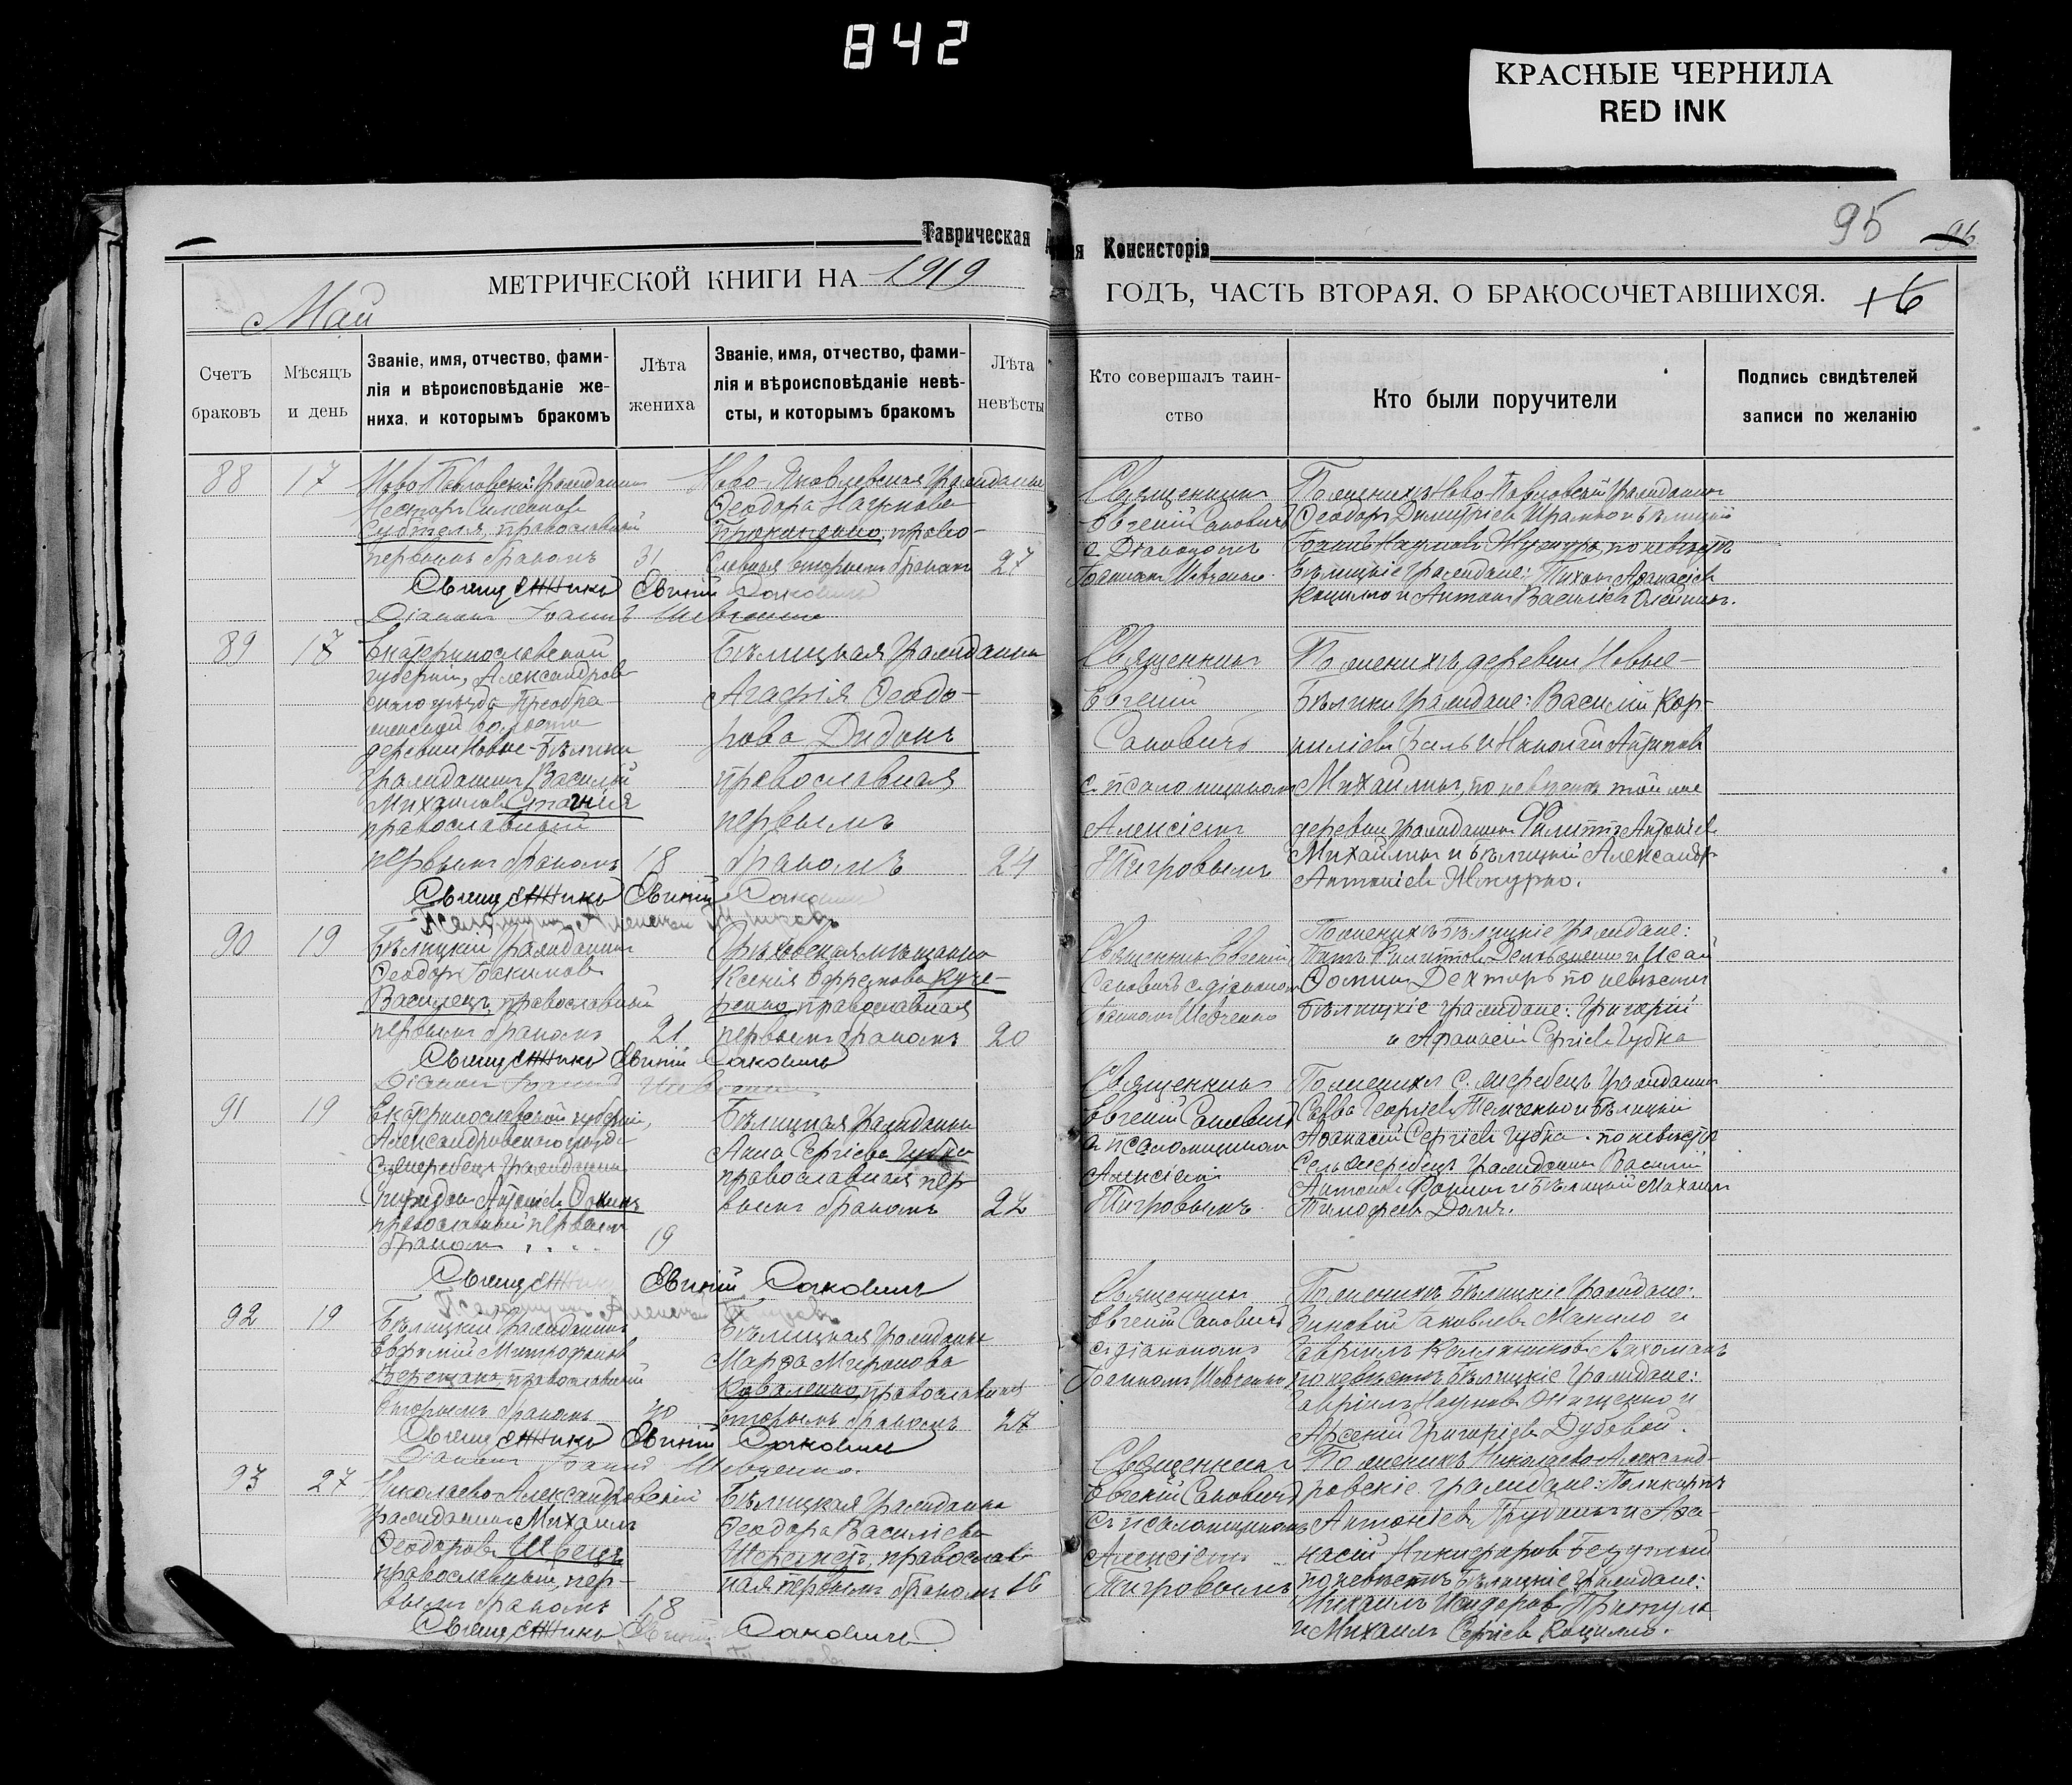 842
КРАСНЫЕ ЧЕРНИЛА
RED INK
95 96
Таврическая Д
ая Консисторія
МЕТРИЧЕСКОЙ КНИГИ НА 1919
ГОДЪ, ЧАСТЬ ВТОРАЯ, О БРАКОСОЧЕТАВШИХСЯ.
+6
Май
Счетъ браковъ
Мѣсяцъ и день
Званіе, имя, отчество, фами-
лія и вѣроисповѣданіе же-
ниха, и которымъ бракомъ
Лѣта жениха
Званіе, имя, отчество, фами-
лія и вѣроисповѣданіе невѣ-
сты, и которымъ бракомъ
Лѣта невѣсты
Кто совершалъ таин-
ство
Кто были поручители
Подпись свидѣтелей
записи по желанію
88 17
Ново-Павловскій Гражданинъ
Несторъ Симеоновъ
православный
первымъ бракомъ 31
Ново-Яковлевская Гражданка
Ѳеодора Наумова
право-
славная вторымъ бракомъ 27
Священникъ
Евгеній Саковичъ
с Діакономъ
Іоанномъ Шевченко.
По жениху Ново-Павловскій Гражданинъ
Ѳеодоръ Димитріевъ
Іоаннъ Наумовъ по невѣстѣ
Бѣлицкіе Граждане: Тихонъ Аѳанасіевъ
Коцилло и Антонъ Василіевъ
Священникъ Евгеній Саковичъ
Діаконъ Іоаннъ Шевченко
89 17
Екатеринославской
губерніи, Александров-
скаго уѣзда Преобра-
женской волости
деревни Новые-Бѣлики
гражданинъ Василій
Михаиловъ
православный
первымъ бракомъ 18
Бѣлицкая Гражданка
Агафія Ѳеодо-
рова Дидокъ
православная
первымъ
бракомъ 24
Священникъ
Евгеній
Саковичъ
с псаломщикомъ
Алексіемъ
Тигровымъ
По жениху деревни Новые-
Бѣлики Граждане: Василій Кор-
ниліевъ Баль и Николай
по невѣстѣ той же
деревни гражданинъ Филиппъ Антоніевъ
и Бѣлицкій Александръ
Антоніевъ
Священникъ Евгеній Саковичъ
Псаломщикъ Алексій Тигровъ
90 19
Бѣлицкій Гражданинъ
Ѳеодоръ Іоакимовъ
Василецъ, православный
первымъ бракомъ 21
Орѣховская мѣщанка
Ксенія Ефремова Куче-
ренко православная
первымъ бракомъ 20
Священникъ Евгеній
Саковичъ с діакономъ
Іоанномъ Шевченко
По жениху Бѣлицкіе Граждане:
и Исай
Ѳомин Дехтярь по невѣстѣ
Бѣлицкіе граждане: Григорій
и Аѳанасій Сергіевъ Губка
Священникъ Евгеній Саковичъ
Діаконъ Іоаннъ Шевченко
91 19
Екатеринославской губерніи,
Александровскаго уѣзда
с. Жеребецъ Гражданинъ
Спиридонъ Антоніевъ
православный первымъ
бракомъ 19
Бѣлицкая Гражданка
Анна Сергіева Губка
православная, пер-
вымъ бракомъ 22
Священникъ
Евгеній Саковичъ
с псаломщикомъ
Алексіемъ
Тигровымъ.
По жениху с. Жеребецъ Гражданинъ
Савва Георгіевъ и Бѣлицкій
Аѳанасій Сергіевъ Губка. по невѣстѣ
Села Жеребецъ Гражданинъ Василій
Антоновъ и Бѣлицкій Михаилъ
Тимофеевъ
Священникъ Евгеній Саковичъ
Псаломщикъ Алексій Тигровъ
92 19
Бѣлицкій Гражданинъ
Евфимій Митрофановъ
Верещака, православный
вторымъ бракомъ 40
Бѣлицкая Гражданка
Марфа Миронова
Коваленко, православная
вторымъ бракомъ 27
Священникъ
Евгеній Саковичъ
с діакономъ
Іоанномъ Шевченко
По жениху Бѣлицкіе Граждане:
Зиновій Іаковлевъ и
Гавріилъ
по невѣстѣ Бѣлицкіе Граждане:
Гавріилъ Наумовъ Онищенко и
Арсеній Григоріевъ Дубовой.
Священникъ Евгеній Саковичъ
Діаконъ Іоаннъ Шевченко.
93 27
Николаево-Александровскій
Гражданинъ Михаилъ
Ѳеодоровъ Швецъ
православный, пер-
вымъ бракомъ 18
Бѣлицкая Гражданка
Ѳеодора Василіева
Шеремета, православ-
ная первымъ бракомъ 16
Священникъ
Евгеній Саковичъ
с псаломщикомъ
Алексіемъ
Тигровымъ
По жениху Николаево-Александ-
ровскіе граждане: Поликарпъ
Антоніевъ и Аѳа-
насій Никифоровъ
по невѣстѣ Бѣлицкіе Граждане:
Михаилъ Исидоровъ Притула
и Михаилъ Сергіевъ Коцилло.
Священникъ Евгеній Саковичъ